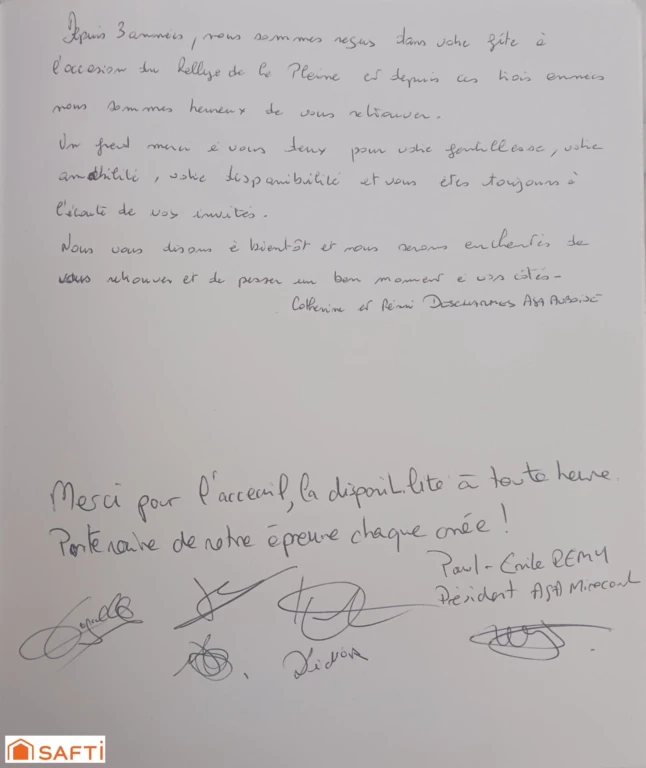 Depuis 3 années, nous sommes reçus dans votre gîte à
l'occasion du Rallye de la Plaine et depuis ces trois années
nous sommes heureux de vous retrouver.
Un grand merci à vous deux pour votre gentillesse, votre
amabilité, votre disponibilité et vous êtes toujours à
l'écoute de vos invités.
Nous vous disons à bientôt et nous serons enchantés de
vous retrouver et de passer un bon moment à vos côtés-
Catherine et Rémi ASA
Merci pour l'acceuil, la disponibilité à toute heure.
Partenaire de notre épreuve chaque année !
Paul-Emile REMY
Président ASA Mirecourt
SAFTI